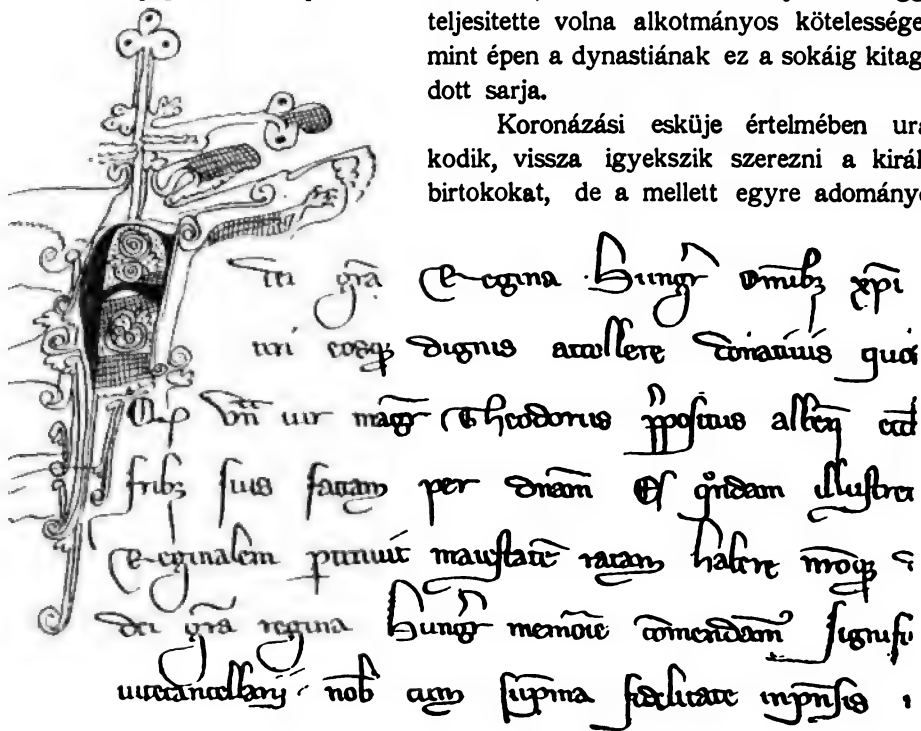 teljesitette volna alkotmányos kötelessége
mint épen a dynastiának ez a sokáig kitag
dott sarja.
Koronázási esküje értelmében ura
kodik, vissza igyekszik szerezni a királ
birtokokat, de a mellett egyre adomány
dei gr̄a Regina Hungr̄ om̄ibꝫ xp̄i
turi eosqꝫ dignis attollere donatiuis
uir magr̄ Theodorus p̄positus alben̄
fr̄ibꝫ suis factam per dn̄am q̄ndam illustrem
Reginalem petiuit maiestatē ratam habere
dei gr̄a regina Hungr̄ memorie com̄endam̄ signifi
uicecancellarij nob̄ cum sup̄ma fidelitate inpēnsis